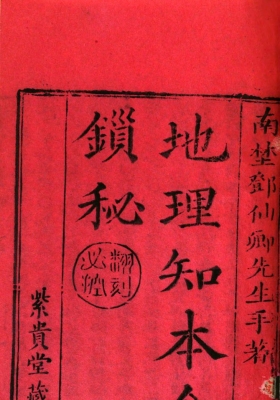 南埜鄧仙卿先生手著
地理知本
鎖秘
翻刻
必究
紫貴堂藏